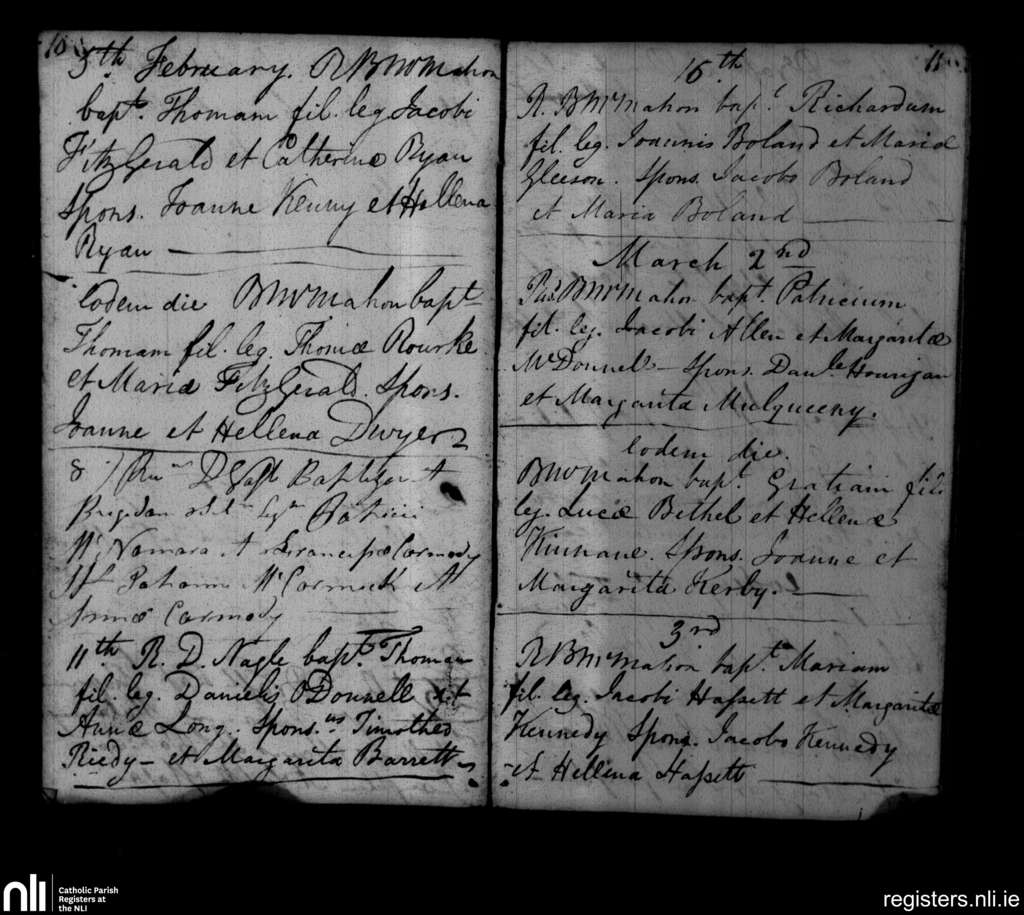 10
5th February. R BMcMahon
bapt. Thomam fil. leg Jacobi
FitzGerald et Catherinæ Ryan
Spons. Joanne Kenny et Hellena
Ryan
Eodem die BMcMahon bapt
Thomam fil. leg. Thomæ Rourke
et Mariæ FitzGerald. Spons.
Joanne et Hellena Dwyer
8
Patricii
McNamara et Cormody
McCormack et
Anna Carmody
11th R. D. Nagle bapt. Thomam
fil. leg. Danielis O'Donnell et
Annæ Long. Spons.us Timotheo
Riedy - et Margarita Barrett
11
16th
R. BMcMahon bapt. Richardum
fil. leg. Joannis Boland et Mariæ
Gleeson. Spons. Jacobo Boland
et Maria Boland
March 2nd
BMcMahon bapt. Patricium
fil. leg. Jacobi Allen et Margaritæ
McDonnell - Spons. Danle Hourigan
et Margarita Mulqueeny.
Eodem die.
BMcMahon bapt. fil.
leg. Lucæ Bethel et Hellenæ
Kinnane. Spons. Joanne et
Margarita Kerby.
3rd
R BMcMahon bapt. Mariam
fil. leg. Jacobi Hassett et Margaritæ
Kennedy Spons. Jacobo Kennedy
et Hellena Hassett
nli
Catholic Parish
Registers at
the NLI
registers.nli.ie